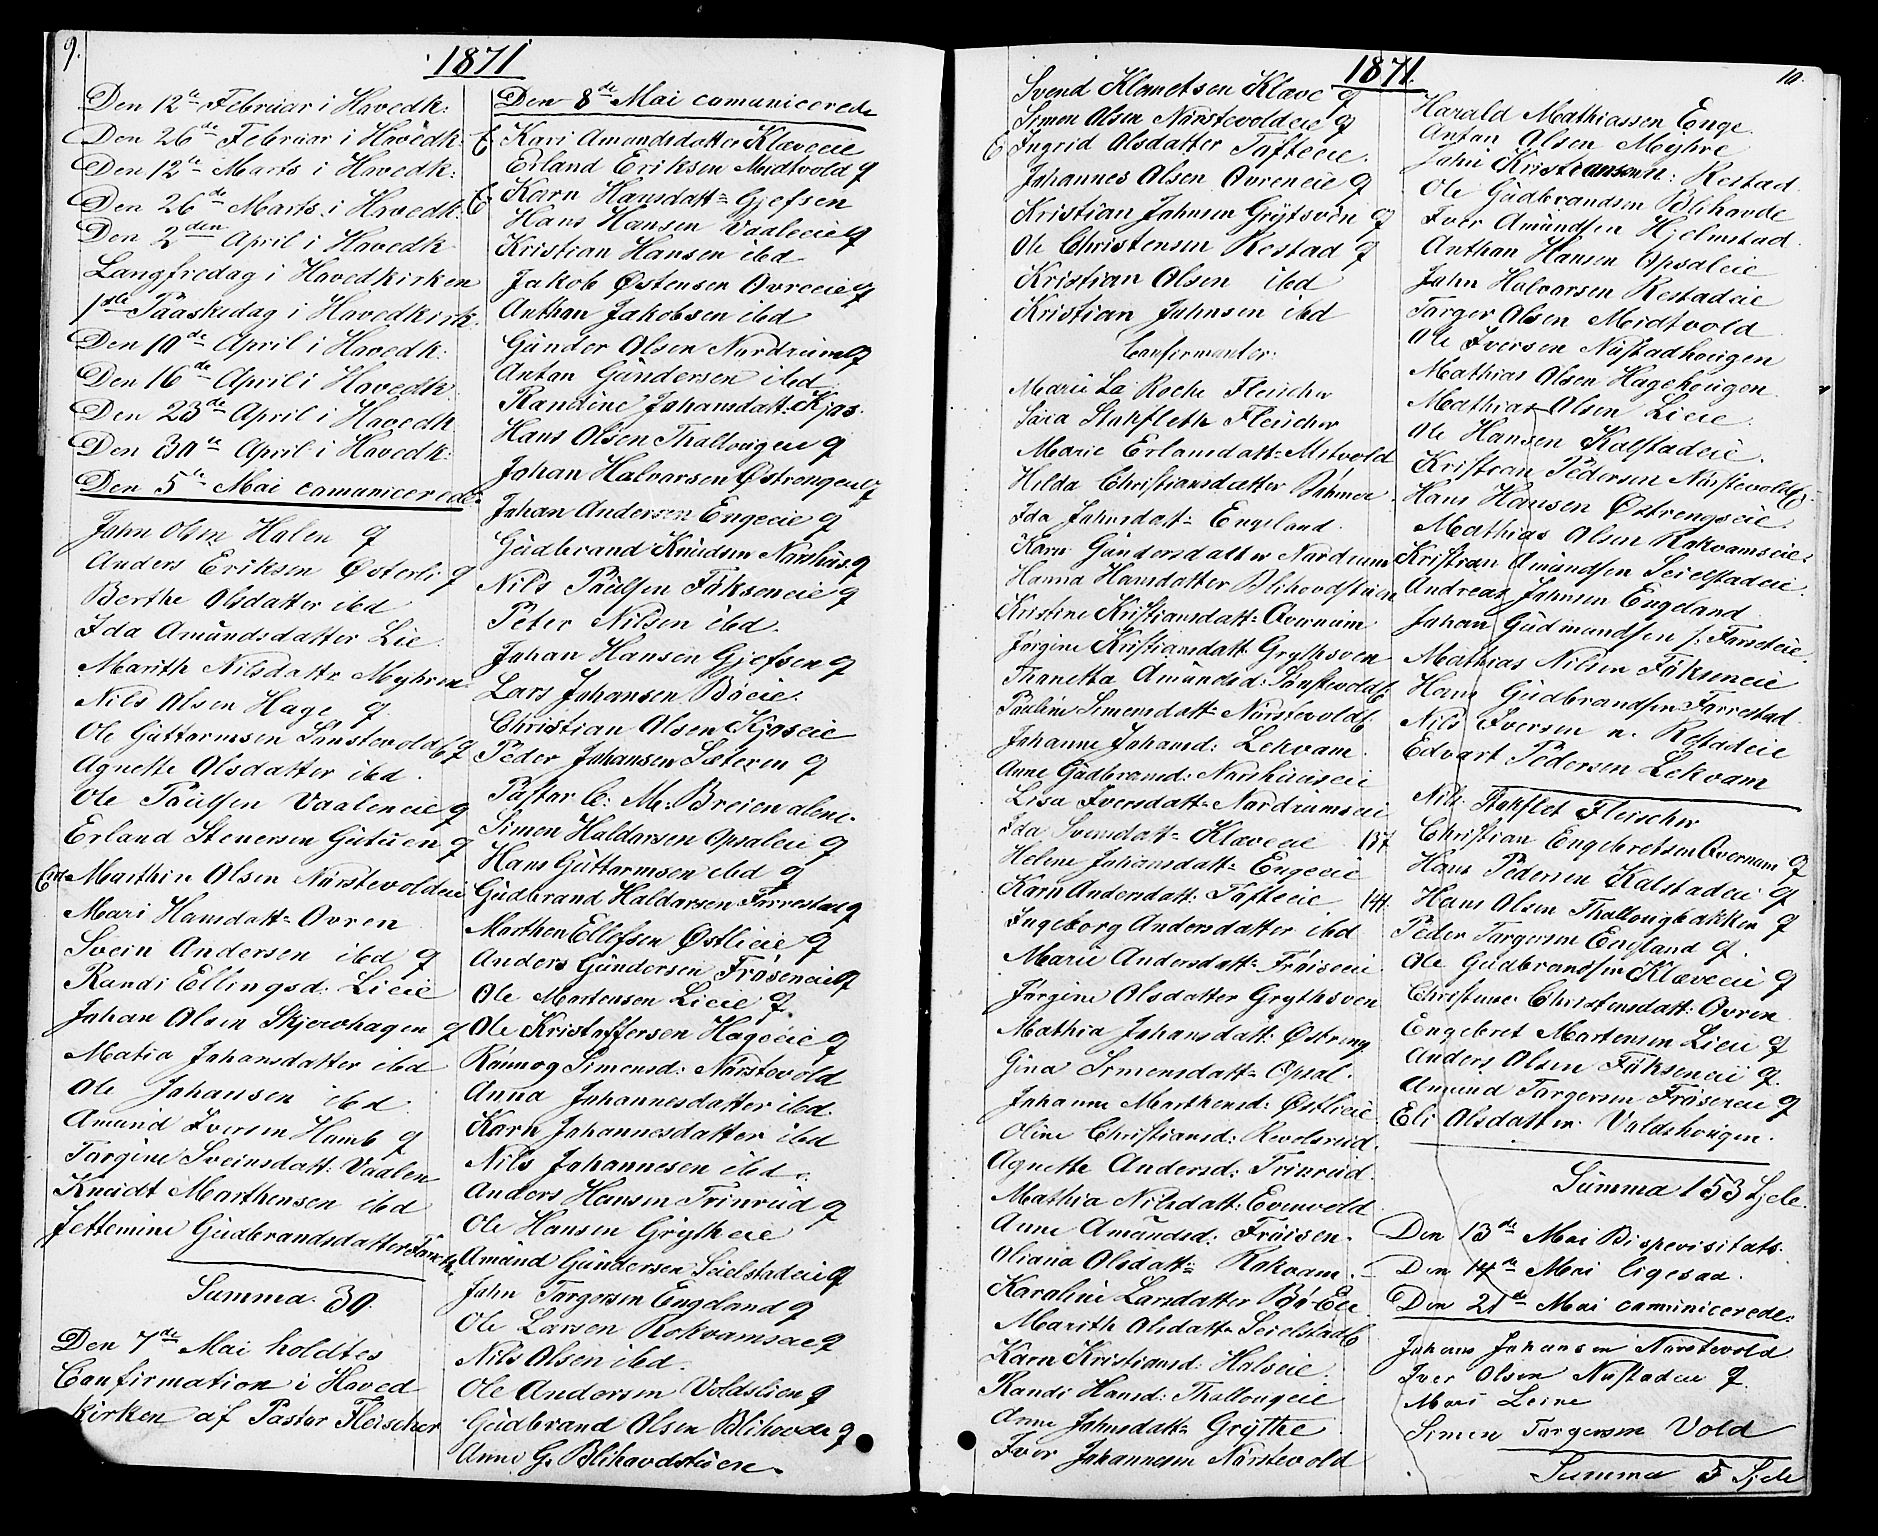 9.
1871
Den 12te Februar i Hovedk:
Den 26de Februar i Hovedk.
Den 12te Marts i Hovedk:
Den 26de Marts i Hovedk.
Den 2den April i Hovedk
Langfredag i Hovedkirken
1ste Paaskedag i Hovedkirk.
Den 10de April i Hovedk:
Den 16de April i Hovedk.
Den 23de April i Hovedk
Den 30te April i Hovedk:
Den 5te Mai comunicerede
John Olsen Holen q
Anders Eriksen Østerli q
Berthe Olsdatter ibd
Ida Amundsdatter Lie
Marith Nilsdatter Myhren
Nils Olsen Hage q
Ole Guttormsen Sønstevold q
Agnethe Olsdatter ibd.
Ole Poulsen Vaaleneie q
Erland Stenersen Gutuen q
Marthin Olsen Nørstevoldeie
Mari Hansdatt: Ovren
Svein Andersen ibd q
Randi Ellingsd: Lieie
Johan Olsen Skjervhagen q
Matia Johansdatter ibd
Ole Johansen ibd.
Amund Iversen Homb q
Torgine Sveinsdatt: Vaalen
Knudt Marthensen ibd
Jettemine Gudbrandsdatter
Summa. 30.
Den 7de Mai holdtes
Confirmation i Hoved
kirken af Pastor Fleischer
Den 8de Mai comunicerede
Kari Amundsdatter Klaveeie
Erland Eriksen Midtvold q
Karn Hansdatt: Gjefsen
Hans Hansen Vaaleeie q
Kristian Hansen ibd
Jakob Østensen Ovreeie q
Anthon Jakobsen ibd
Gunder Olsen Nordrum q
Anton Gundersen ibd
Randine Johansdatt: Kjos.
Hans Olsen Thallougen q
Johan Halvorsen Østrengen q
Johan Andersen Engeeie q
Gudbrand Knudsen Norshus q
Nils Poulsen Fokseneie q
Peter Nilsen ibd.
Johan Hansen Gjefsen q
Lars Johansen Bøeie.
Christian Olsen Kjoseie
Peder Johansen Sæteren q
Pastor C: M: Breien alene.
Simen Haldorsen Opsaleie q
Hans Guttormsen ibd q
Gudbrand Haldorsen Forrestad q
Morthen Ellefsen Østlieie q
Anders Gundersen Frøseneie q
Ole Mortensen Lieie q.
Ole Kristoffersen Hageeie q
Rønnog Simensd: Nørstevold
Anna Johannesdatter ibd.
Karn Johannesdatter ibd
Nils Johannesen ibd.
Anders Hansen Trinrud q
Ole Hansen Grytheeie
Amund Gundersen Seielstadeie q
John Torgersen Engeland q
Ole Larsen Rokvamseie q
Nils Olsen ibd.
Ole Andersen Voldslien q
Gudbrand Olsen Blihovde q
Anne G. Blihovdstuen.
10.
1871.
Svend Klemetsen Klæve q
Simen Olsen Nørstevoldeie q
Ingrid Olsdatter Tofteeie.
Johannes Olsen Ovreneie q
Kristian Johnsen Grytsvén q
Ole Christensen Restad q
Kristian Olsen ibd
Kristian Johnsen ibd
Confirmanter:
Marie La Roche Fleischer
Sara Stokfleth Fleischer
Marie Erlandsdatt: Mitvold
Hilda Christiansdatter Böhmer
Ida Johnsdatt: Engeland.
Karn Gundersdatter Nordrum
Hanna Hansdatter Blihovdstuen
Kristine Kristiansdatt: Overnum
Jørgine Kristiansdatt: Grythsven
Thonetta Amundsd. Sønstevold
Pauline Simensdatt: Nørstevold
Johanne Johansd: Lekvam
Anne Gudbransd: Norshuuseie
Lisa Iversdatt: Nordrumseie
Ida Svensdatt: Klæveeie 137
Helene Johansdatt: Engeeie
Karn Andersdatt: Tofteeie
Ingeborg Andersdatter ibd
Marie Andersdatt: Frøiseeie
Jørgine Olsdatter Grythsven
Mathia Johansdatt: Østreng
Gina Simensdatt: Opsal.
Johanne Marthensd: Østlieie
Oline Christiansd: Revlsrud.
Agnethe Andersd: Trinrud.
Mathia Nilsdatt: Evenvold
Anne Amundsd: Frøisen.
Oliana Olsdatt: Rokvam.
Karoline Larsdatter Bø-Eie
Marith Olsdatt: Seielstad
Karn Kristiansd: Holseie.
Randi Hansd: Thallougeie
Anne Johnsdatt: Grythe
Iver Johannesen Nørstevold
Harald Mathiassen Enge
Anton Olsen Myhre
John Kristiansen: Restad.
Ole Gudbrandsen Blihovde
Iver Amundsen Hjelmstad.
Anthon Hansen Opsaleie
John Halvorsen Restadeie
Torger Olsen Meidtvold
Ole Iversen Nustadhougen
Mathias Olsen Hagehougen
Mathias Olsen Lieie.
Ole Hansen Kalstadeie.
Kristian Pedersen Nørstevold
Hans Hansen Østrengseie.
Mathias Olsen Rokvamseie
Kristian Amundsen Seielstadeie.
Andreas Johnsen Engeland
Johan Gudmundsen f: Forseteie.
Mathias Nilsen Fokseneie
Hans Gudbrandsen Forrestad.
Nils Iversen n. Restadeie
Edvart Pedersen Lekvam
Nils Stokflet Fleischer
Christian Engebretsen Overnum q
Hans Pedersen Kalstadeie q
Hans Olsen Thallougbakken q
Peder Torgersen Engeland q.
Ole Gudbrandsen Klæveeie q
Christiane Christensdatt: Ovren
Engebret Mortensen Lieie q
Anders Olsen Fokseneie q.
Amund Torgersen Frøseneie q
Eli Olsdatter Voldshougen.
Summa 153 Sjele.
Den 13de Mai Bispevisitats.
Den 14de Mai ligesaa.
Den 21de Mai comunicerede:
Johans Johansen Nørstevold
Iver Olsen Nustadeie q.
Mari Leine
Simen Torgersen Vold
Summa 5 Sjele